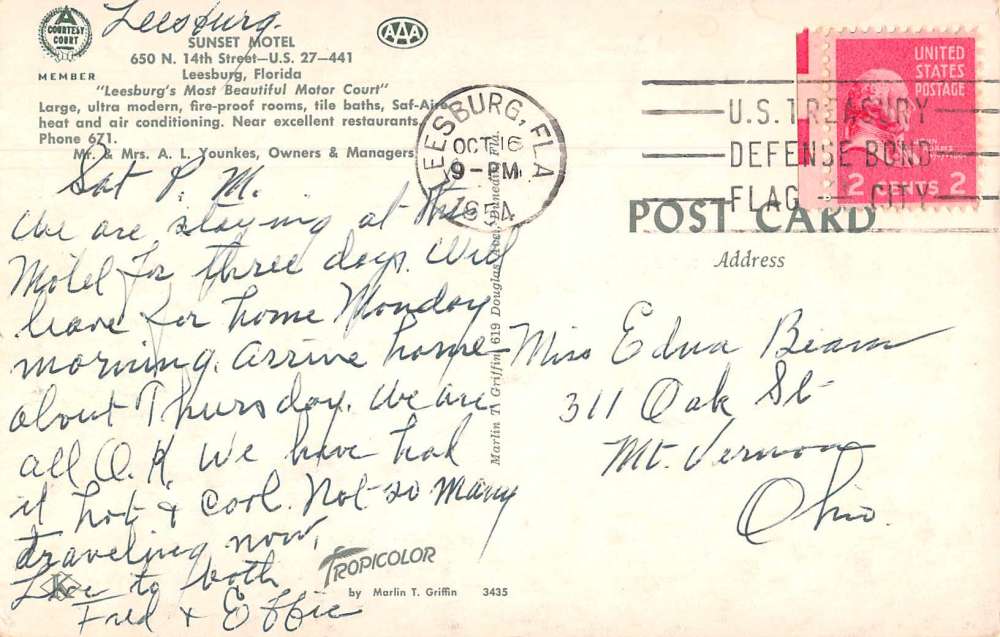 Leesburg.
A
COURTESY
COURT
MEMBER
AAA
SUNSET MOTEL
650 N. 14th Street—U.S. 27—441
Leesburg, Florida
"Leesburg's Most Beautiful Motor Court"
Large, ultra modern, fire-proof rooms, tile baths, Saf-Aire
heat and air conditioning. Near excellent restaurants.
Phone 671.
Mr. & Mrs. A. L. Younkes, Owners & Managers
Sat P. M.
We are staying at this
Motel for three days. Will
leave for home Monday
morning. arrive home
about Thursday. We are
all O.K. We have had
it hot & cool. Not so many
traveling now.
Love to both
Fred & Effie
LEESBURG, FLA
OCT 16
9-PM
1954
U.S. TREASURY
DEFENSE BOND
FLAG CITY
UNITED
STATES
POSTAGE
2 CENTS 2
POST CARD
Address
Miss Edna Beam
311 Oak St
Mt. Vernon
Ohio.
Marlin T. Griffin, 619 Douglas Ave., Dunedin, Fla.
TROPICOLOR
by Marlin T. Griffin 3435
K